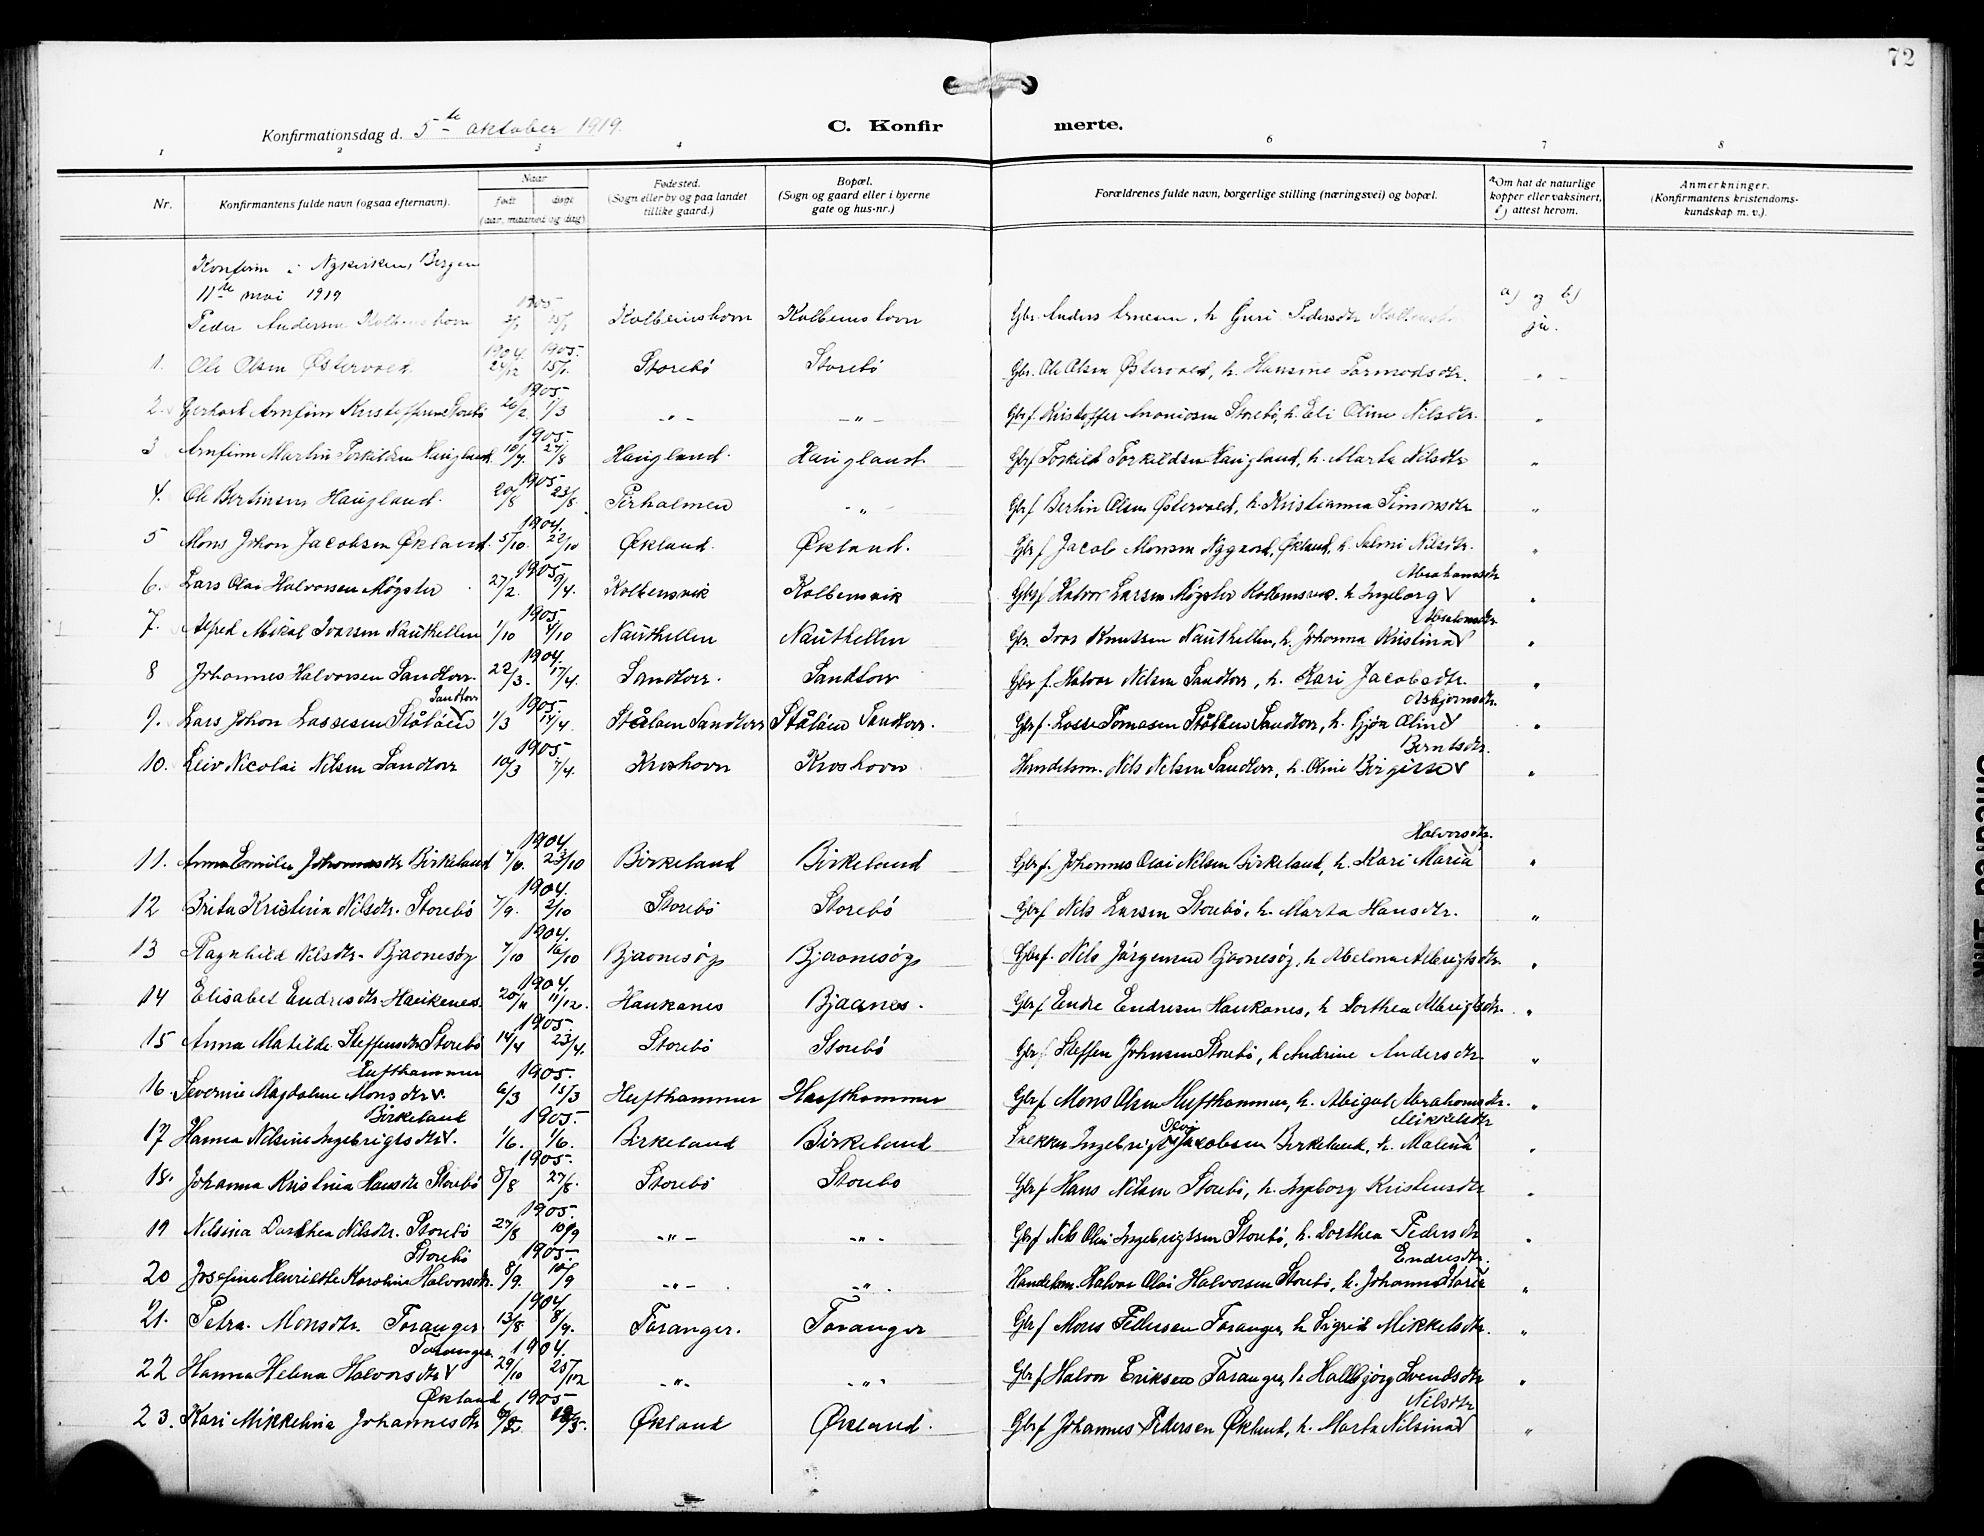 72
Konfirmationsdag d. 5te oktober 1919.
C. Konfirmerte.
1 2 3 4 6 7 8
Nr. Konfirmantens fulde navn (ogsaa efternavn). Naar født døpt (aar, maaned og dag) Fødested. (Sogn eller by og paa landet tillike gaard.) Bopæl. (Sogn og gaard eller i byerne gate og hus-nr.) Forældrenes fulde navn, borgerlige stilling (næringsvei) og bopæl. a) Om hat de naturlige kopper eller vaksinert, b) attest herom. Anmerkninger. (Konfirmantens kristendomskundskap m. v.).
Konfirm i Nykirken, Bergen
11te mai 1919
Peder Andersen Kolbeinshavn 1905 Kolbeinshavn Kolbeinshavn Gbr. Anders Arnesen, h. Guri Pedersdtr a) og b) ja.
1. Ole Olsen Østervold 1904 1905 15/1 Storebö Storebö Gbr. Ole Olsen Østervold, h. Hansine Tormodsdtr. - " -
2. Gerhard Arnfinn Kristoffersen Storebö 1905 26/2 1/3 - " - - " - Gbrf. Kristoffer Ananiasen Storebö, h. Eli Oline Nilsdtr. "
3 Arnfinn Martin Torkildsen Haugland 1905. 10/7. 27/8 Haugland. Haugland Gbrf Torkild Torkildsen Haugland, h. Marta Nilsdtr "
4. Ole Bertinsen Haugland. 1905 20/8 23/8 Perholmen - " Gbrf Bertin Olsen Østervold, h. Kristianna Simonsdtr "
5 Mons Johan Jacobsen Økland. 1904. 5/10. 22/10 Økland. Økland. Gbrf Jacob Monsen Nygaard, Økland, h. Salmi Nilsdtr. "
6. Lars Olai Halvorsen Møgster 1905 27/2. 9/4. Kolbensvik Kolbensvik Gbrf Halvor Larsen Møgster Kolbensvik, h. Ingeborg Abrahamsdtr "
7. Alfred Mikal Ivarsen Nauthellen 1905 1/10 Nauthellen Nauthellen Gbr. Ivar Knutsen Nauthellen, h. Johanna Kristina "
8 Johannes Halvorsen Sandtorv. 1904 22/3. 17/4. Sandtorv. Sandtorv Gbr f. Halvor Nilsen Sandtorv, h. Kari Jacobsdtr. "
9. Lars Johan Lassesen Stålöen Sandtorv 1905 1/3 14/4. Stålöen Sandtorv Stålöen Sandtorv. Gbr f. Lasse Tomasen Stålöen Sandtorv, h. Gjøa Oline Asbjørnsdtr. "
10. Leiv Nicolai Nilsen Sandtorv 1905 10/3 7/4. Kroshavn Kroshavn Handelsm. Nils Nilsen Sandtorv, h. Oline Birgitte Berntsdtr. "
11. Anna Emilie Johannesdtr Birkeland 1904. 23/10 Birkeland Birkeland Gbrf. Johannes Olai Nilsen Birkeland, h. Kari Maria Halvorsdtr. "
12 Brita Kristina Nilsdtr. Storebö 1904. 7/9. 2/10 Storebö Storebö Gbrf Nils Larsen Storebö, h. Marta Hansdtr. "
13 Ragnhild Nilsdtr. Bjaanesøy 1904. 7/10 16/10 Bjaanesøy Bjaanesøy Gbrf. Nils Jörgensen Bjaanesøy, h. Abelona Albrigtsdtr. "
14 Elisabet Endresdtr Haukenes. 1904. 20/11 11/12. Haukanes Bjaanes. Gbrf Endre Endresen Haukanes, h. Dorthea Albrigtsdtr. "
15 Anna Matilde Steffensdtr Storebö 1905. 14/4 23/4. Storebö Storebö Gbrf Steffen Johnsen Storebö, h Andrine Andersdtr. "
16. Severine Magdalene Monsdtr Hufthammer 1905. 6/3 15/3 Hufthammer Hufthammer Gbrf Mons Olsen Hufthammer, h. Abigal Abrahamsdtr. "
17 Hanna Nilsine Ingebrigtsdtr. Birkeland 1905. 1/6. 1/6. Birkeland Birkeland Snekker Ingebrigt Olai Jacobsen Birkeland, h. Malena Mikkelsdtr "
18. Johanna Kristina Hansdtr Storebö 1905. 8/8 27/8. Storebö Storebo Gbrf Hans Nilsen Storebö, h. Ingeborg Kristensdtr "
19 Nilsina Dorthea Nilsdtr. Storebö 1905. 27/8 10/9 - " - - " - Gbrf Nils Olai Ingebrigtsen Storebö, h. Dorthea Pedersdtr "
20 Josefine Henriette Karolina Halvorsdtr. Storebö 1905. 8/9. 10/9 - " - " . Handelsm. Halvor Olai Halvorsen Storebö, h. Johanna Maria Endresdtr. "
21. Petra Monsdtr. Foranger. 1904 13/8 8/9. Foranger. Foranger Gbrf Mons Pedersen Foranger, h Sigrid Mikkelsdtr. "
22 Hanna Helena Halvorsdtr Foranger 1904. 29/10 25/12 - " - - " - Gbrf Halvor Eriksen Foranger, h Hallbjörg Svendsdtr "
23. Kari Mikkelina Johannesdtr Økland 1905 Økland Økland. Gbrf Johannes Pedersen Økland, h. Marta Nilsina Nilsdtr "